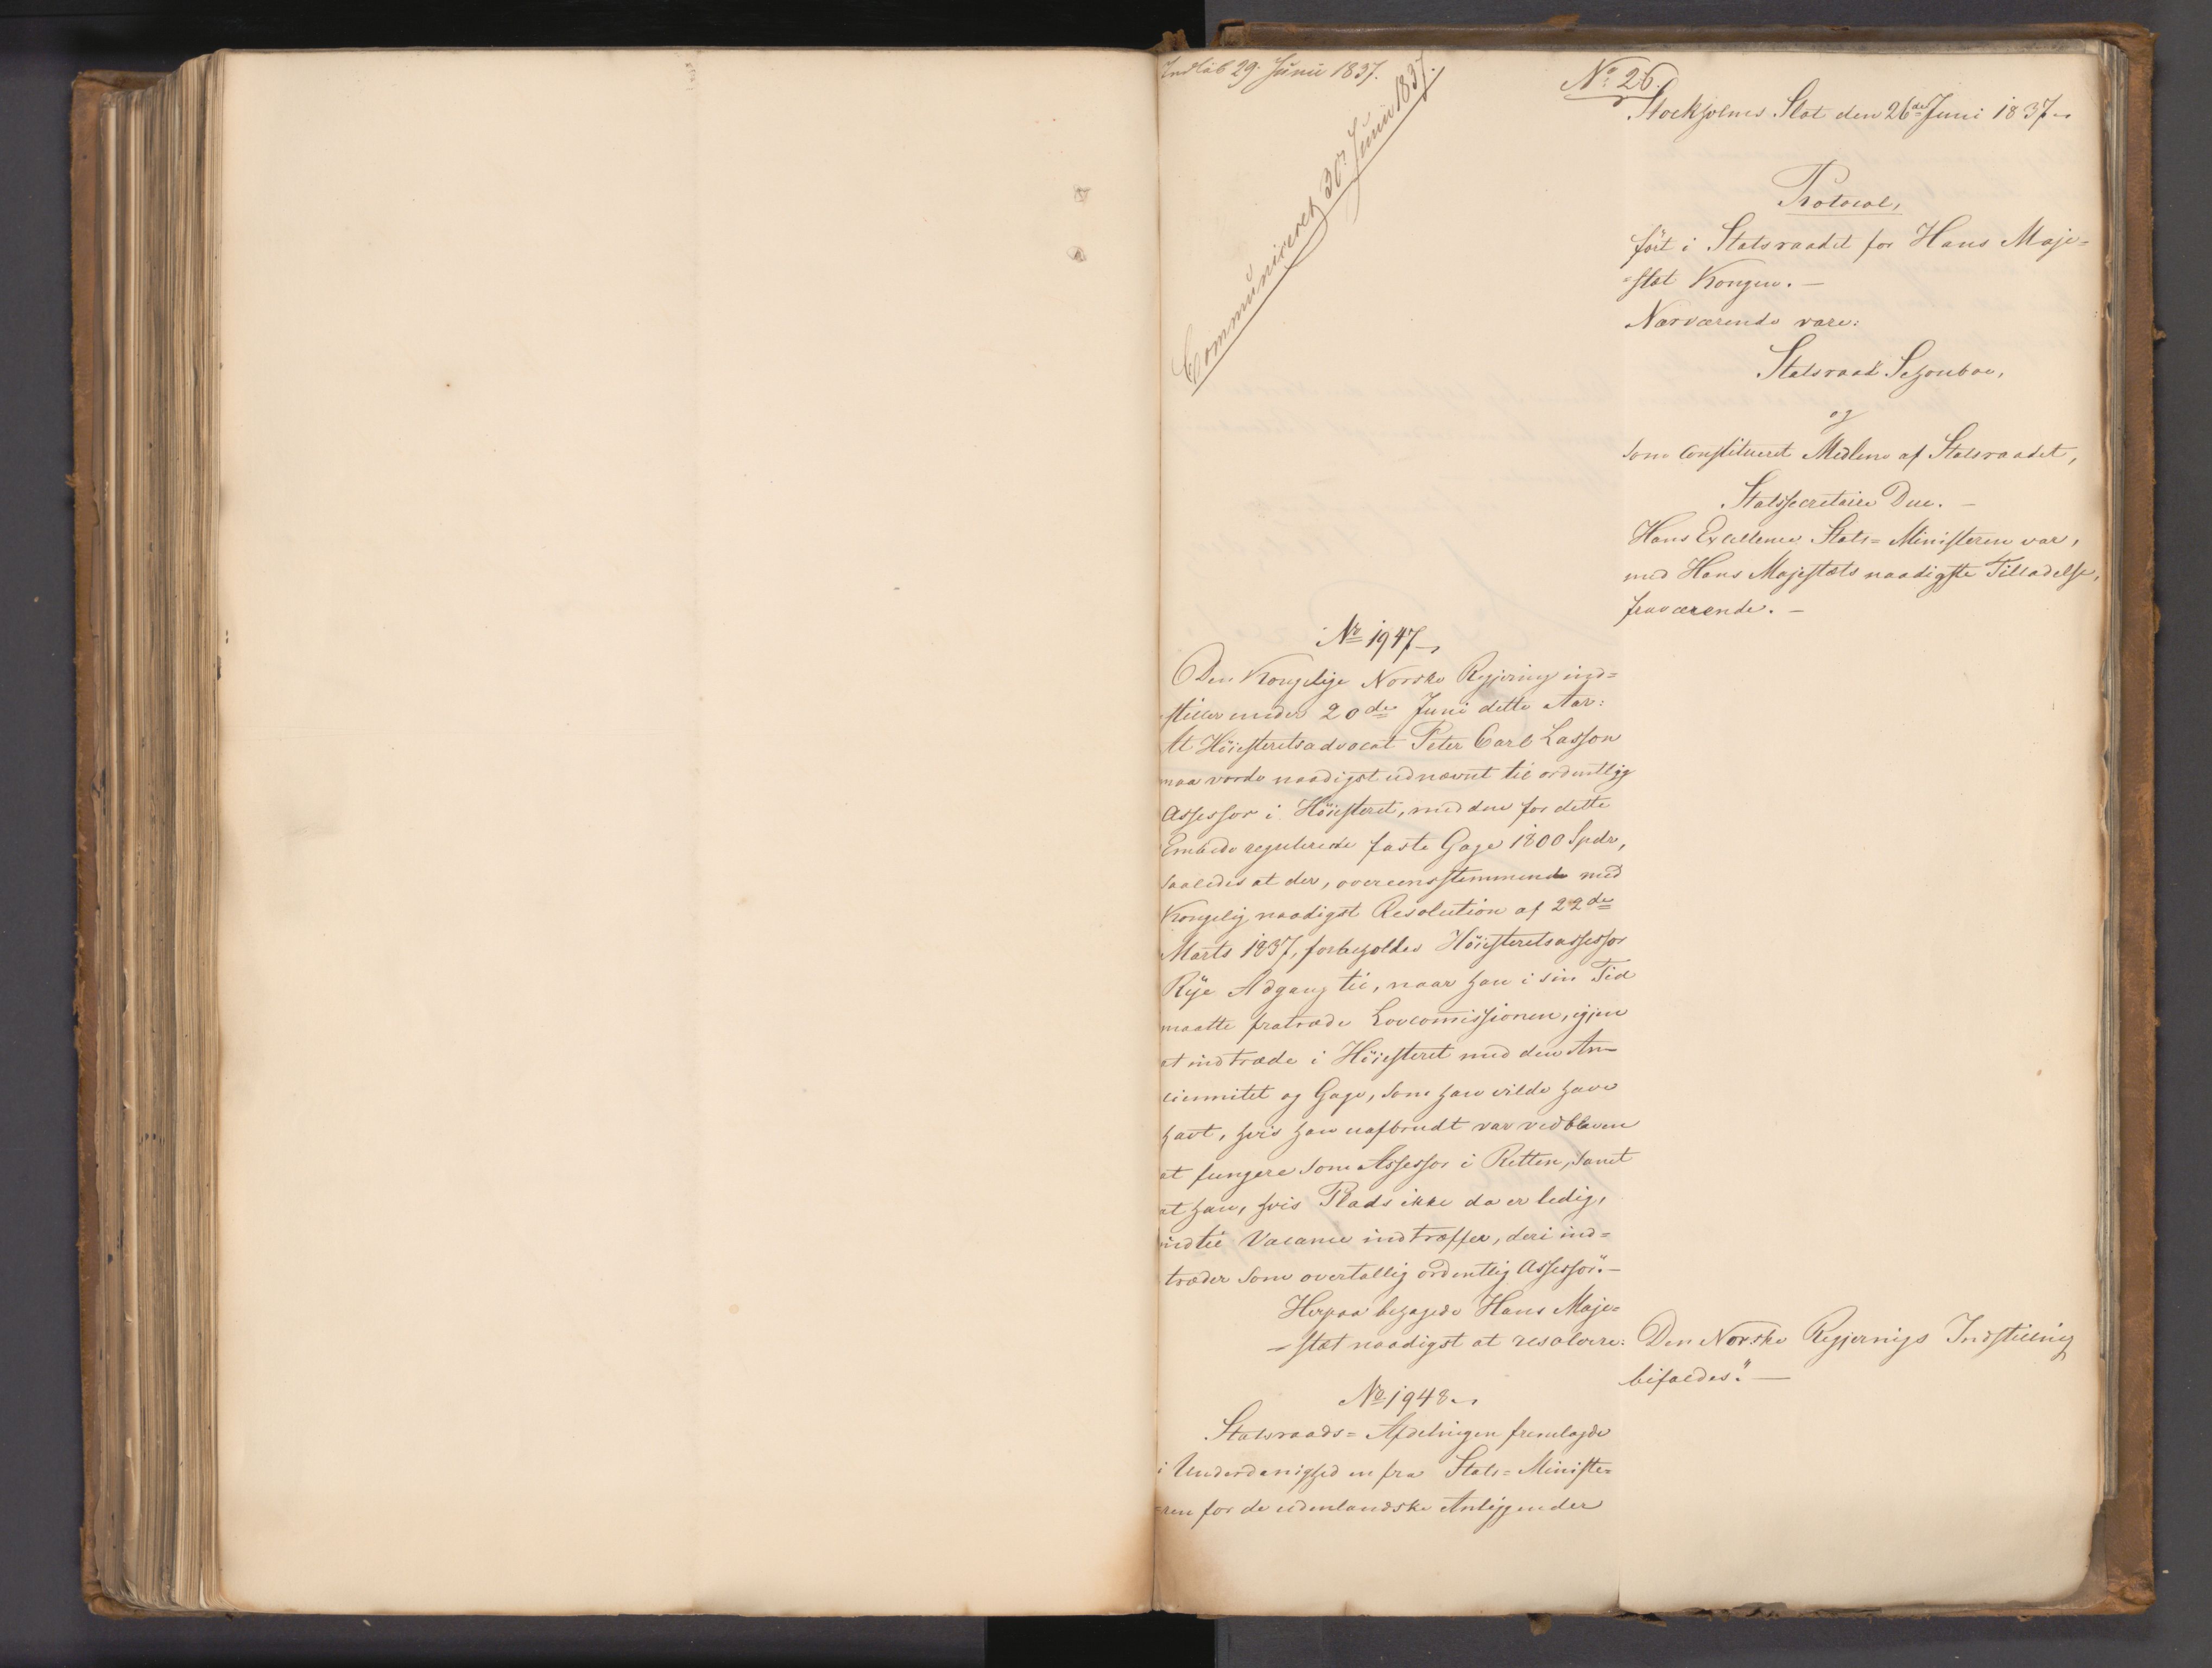 Indløb 29. Junii 1837.
Communiceret 30. Junii 1837.
No. 26.
Stockholms Slot den 26de Juni 1837.
Protocol,
ført i Statsraadet for Hans Maje=
=stæt Kongen. —
Nærværende vare:
Statsraad Schouboe,
og
som constitueret Medlem af Statsraadet,
Statssecretaire Due. —
Hans Excellence Stats=Ministeren var,
med Hans Majestæts naadigste Tilladelse,
fraværende. —
No 1947
Den Kongelige Norske Regjering ind=
stiller under 20de Juni dette Aar:
At Høiesteretsadvocat Peter Carl Lasson
maa vorde naadigst udnævnt til ordentlig
Assessor i Høiesteret, med den for dette
Embede regulerede faste Gage 1800 Spdr,
saaledes at der, overeensstemmende med
Kongelig naadigst Resolution af 22de
Marts 1837, forbeholdes Høiesteretsassessor
Rye Adgang til, naar han i sin Tid
maatte fratræde Lovcomissionen, igjen
at indtræde i Høiesteret med den An=
ciennitet og Gage, som han vilde have
havt, hvis han uafbrudt var vedbleven
at fungere som Assessor i Retten, samt
at han, hvis Plads ikke da er ledig,
indtil Vacance indtræffer, deri ind=
træder som overtallig ordentlig Assessor". —
Herpaa behagede Hans Maje=
=stæt naadigst at resolvere:
Den Norske Regjerings Indstilling
bifaldes". —
No 1948.
Statsraads=Afdelingen fremlagde
i Underdanighed en fra Stats=Ministe=
=ren for de udenlandske Anliggender